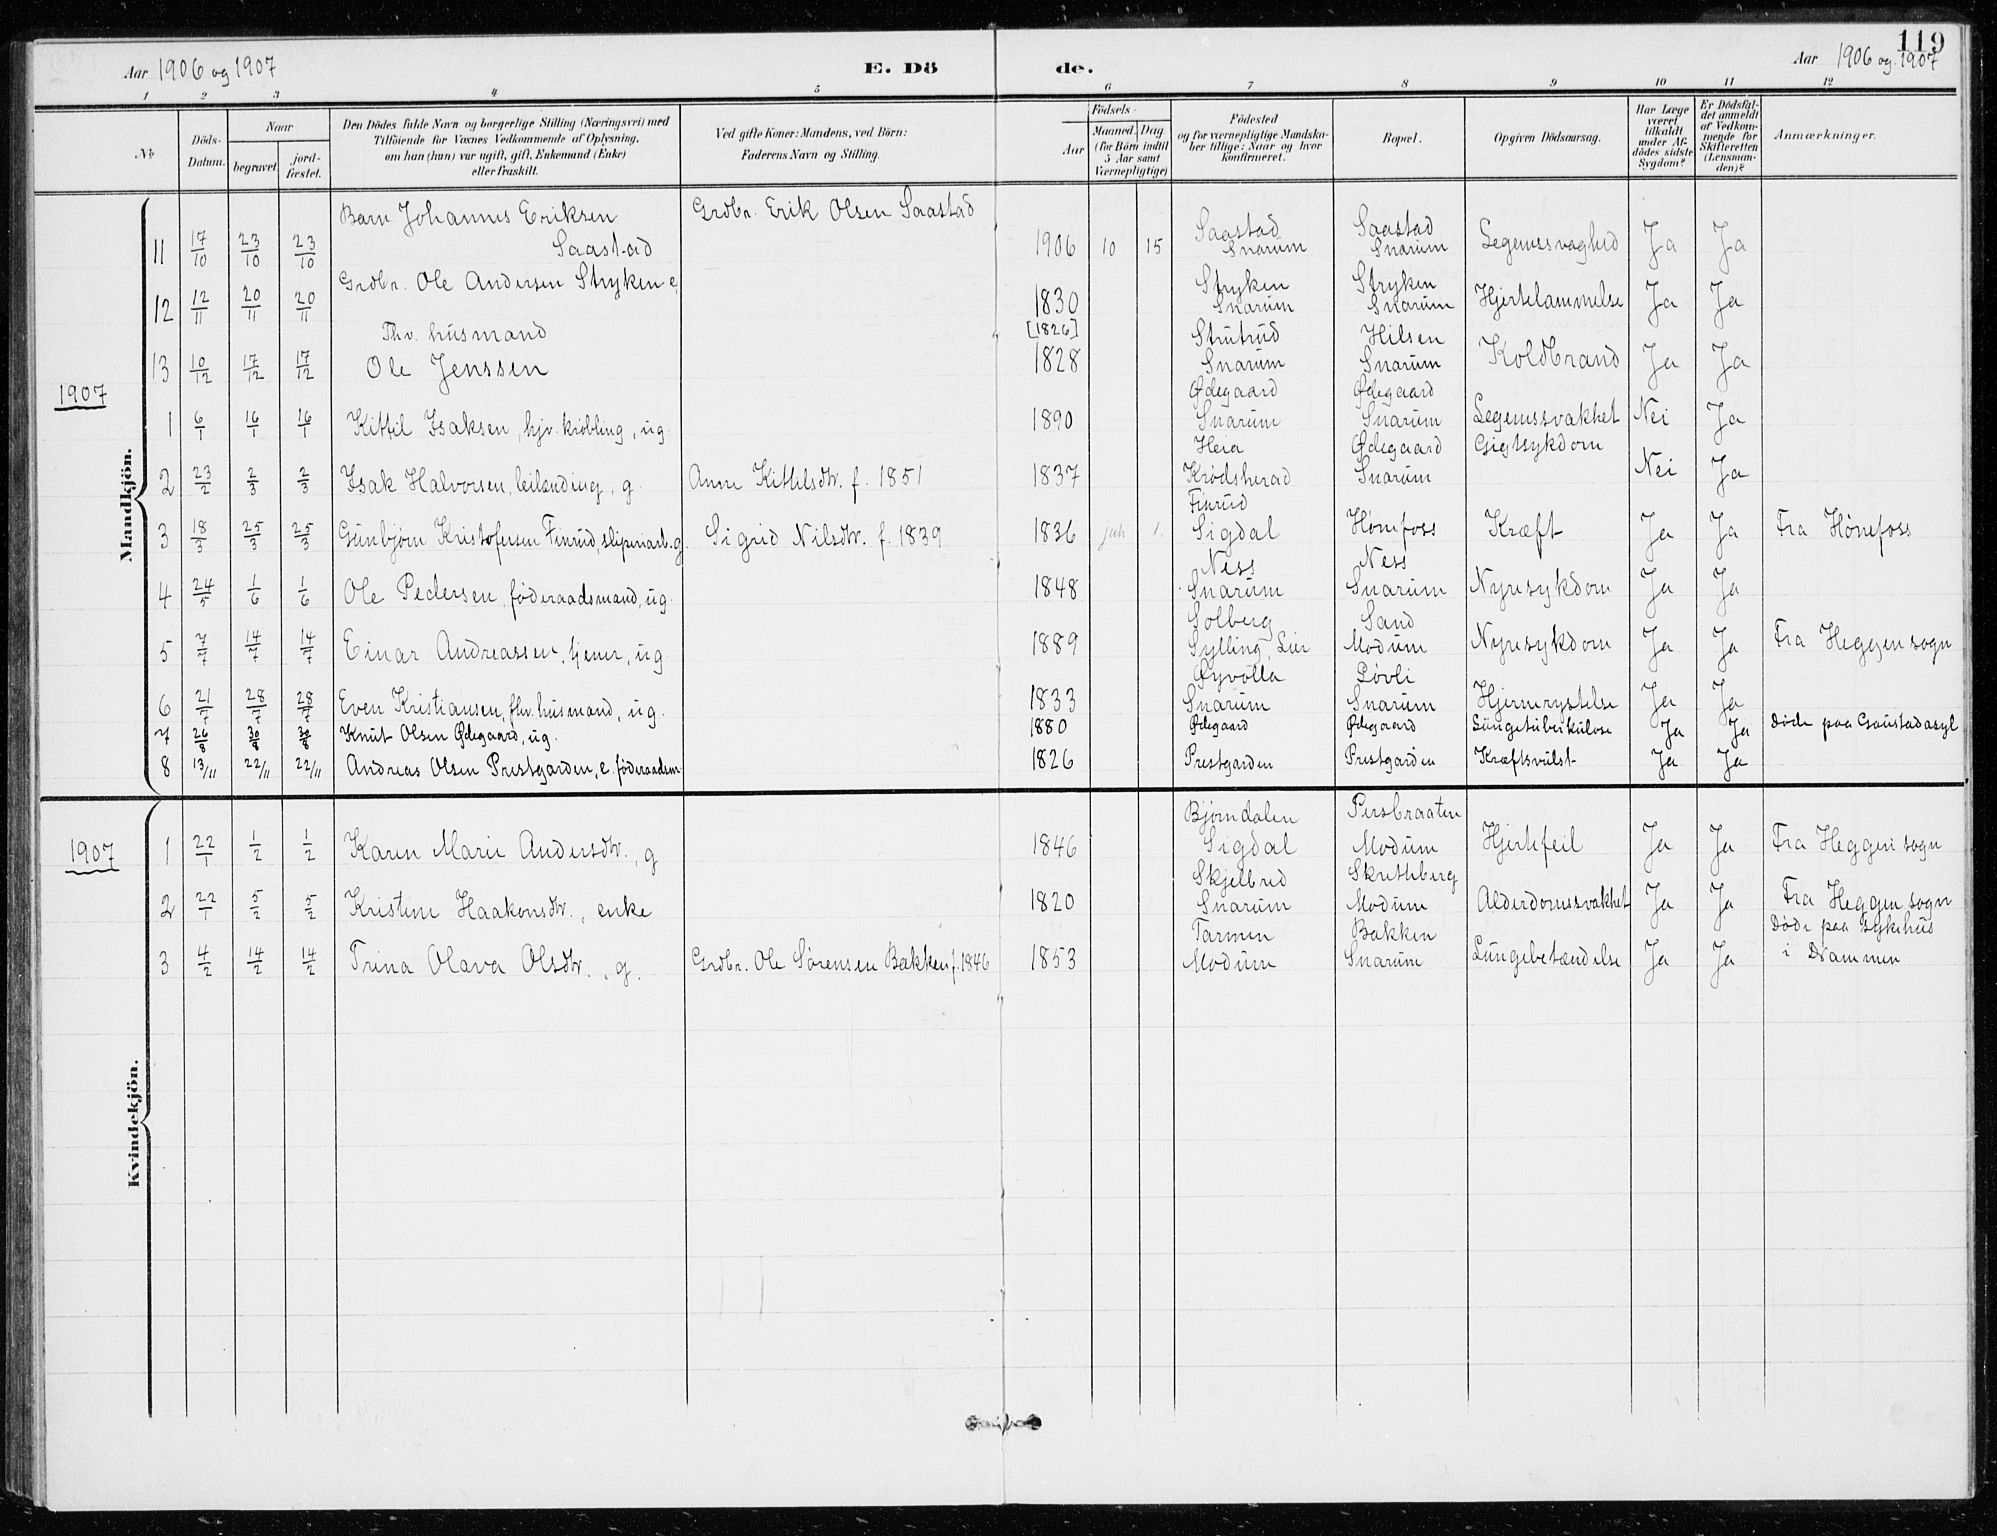 119
Aar 1906 og 1907 E. Dö de. Aar 1906 og 1907
1 2 3 4 5 6 7 8 9 10 11 12
No
Döds-Datum.
Naar
begravet.
jord-fæstet.
Den Dödes fulde Navn og borgerlige Stilling (Næringsvei) med
Tilföiende for Voxnes Vedkommende af Oplysning,
om han (hun) var ugift, gift, Enkemand (Enke)
eller fraskilt.
Ved gifte Koner: Mandens, ved Börn:
Faderens Navn og Stilling.
Födsels-
Aar
Maaned. Dag.
(for Börn indtil
5 Aar samt
Værnepligtige)
Födested
og for værnepligtige Mandska-
ber tillige: Naar og hvor
konfirmeret.
Bopæl.
Opgiven Dödsaarsag.
Har Læge
været
tilkaldt
under Af-
dödes sidste
Sygdom?
Er Dödsfal-
det anmeldt
af Vedkom-
mende for
Skifteretten
(Lensman-
den)?
Anmærkninger.
Mandkjön.
11 17/10 23/10 23/10 Barn Johannes Eriksen Saastad Grdbr. Erik Olsen Saastad 1906 10 15 Saastad Snarum Saastad Snarum Legemssvaghed Ja Ja
12 12/11 20/11 20/11 Grdbr. Ole Andersen Stryken e. 1830 Stryken Snarum Stryken Snarum Hjertelammelse Ja Ja
13 10/12 17/12 17/12 Fhv. husmand Ole Jenssen [1826] 1828 Strutrud Snarum Hilsen Snarum Koldbrand Ja Ja
1907
1 6/1 16/1 16/1 Kittil Isaksen, hjv. krøbling, ug. 1890 Ødegaard Snarum Ødegaard Snarum Legemssvakhet Nei Ja
2 23/2 2/3 2/3 Isak Halvorsen, leilænding, g. Anne Kittilsdtr. f. 1851 1837 Heia Krødsherad Ødegaard Snarum Gigtsykdom Nei Ja
3 18/3 25/3 25/3 Gunbjørn Kristofersen Finrud, sliperiarb. g. Sigrid Nilsdtr. f. 1839 1836 juli 1. Finrud Sigdal Hønefoss Kræft Ja Ja Fra Hønefoss
4 24/5 1/6 1/6 Ole Pedersen, föderaadsmand, ug. 1848 Ness Snarum Ness Snarum Nyresykdom Ja Ja
5 7/7 14/7 14/7 Einar Andreassen, tjener, ug. 1889 Solberg Sylling, Lier Sand Modum Nyresykdom Ja Ja Fra Heggen sogn
6 21/7 28/7 28/7 Even Kristiansen, fhv. husmand, ug. 1833 Øyvolla Snarum Løvli Snarum Hjernerystelse Ja Ja
7 26/8 30/8 30/8 Knut Olsen Ødegaard, ug. 1880 Ødegaard Ødegaard Lungetuberkulose Ja Ja Døde paa Gaustad asyl
8 13/11 22/11 22/11 Andreas Olsen Prestgarden, e. föderaadsm. 1826 Prestgarden Prestgarden Kræftsvulst Ja Ja
Kvindekjön.
1907
1 22/1 1/2 1/2 Karen Marie Andersdtr., g 1846 Bjørndalen Sigdal Persbraaten Modum Hjertefeil Ja Ja Fra Heggen sogn
2 22/1 5/2 5/2 Kristine Haakonsdtr., enke 1820 Skjelbred Snarum Skretteberg Modum Alderdomssvakhet Ja Ja Fra Heggen sogn
3 4/2 14/2 14/2 Trina Olava Olsdtr., g. Grdbr. Ole Sørensen Bakken f. 1846 1853 Tarmen Modum Bakken Snarum Lungebetændelse Ja Ja Døde paa Sykehus i Drammen